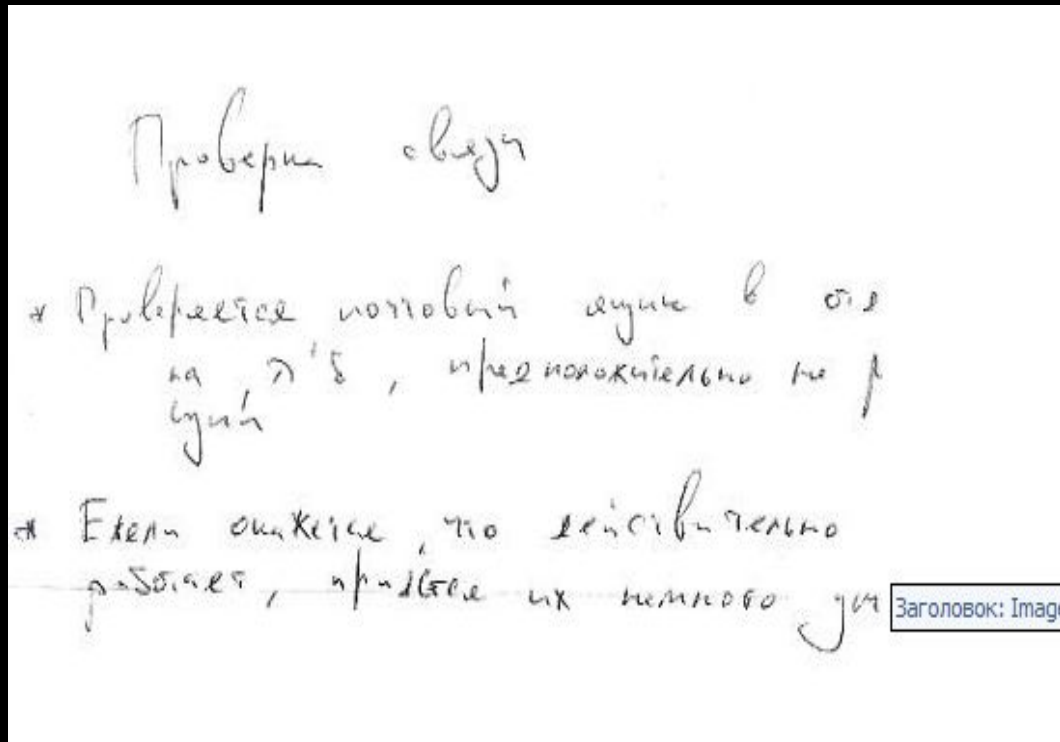 Проверка связи
* Проверяется почтовый ящик в
на, предположительно не р
щий
* Ежели окажется, что действительно
работает, придётся их немного
Заголовок: Image